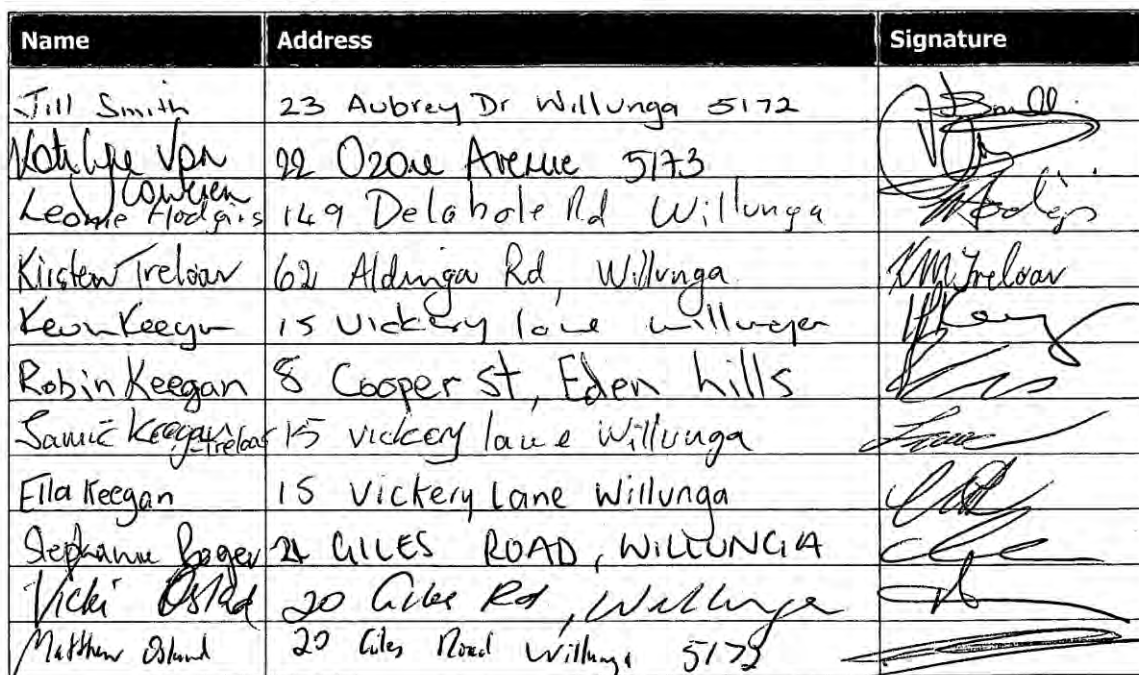 Name Address Signature
Jill Smith 23 Aubrey Dr Willunga 5172
22 Ozone Avenue 5173
Leonie Hodgins 149 Delabole Rd Willunga Hodgins
Kirsten Treloar 62 Aldinga Rd, Willunga KMTreloar
Kevin Keegan 15 Vickery lane willunga
Robin Keegan 8 Cooper St, Eden hills
Jamie Keegan-Treloar 15 vickery lane Willunga
Ella Keegan 15 Vickery Lane Willunga
Stephanie 21 GILES ROAD, WILLUNGA
Vicki 20 Giles Rd, Willunga
Matthew 20 Giles Road Willunga 5172